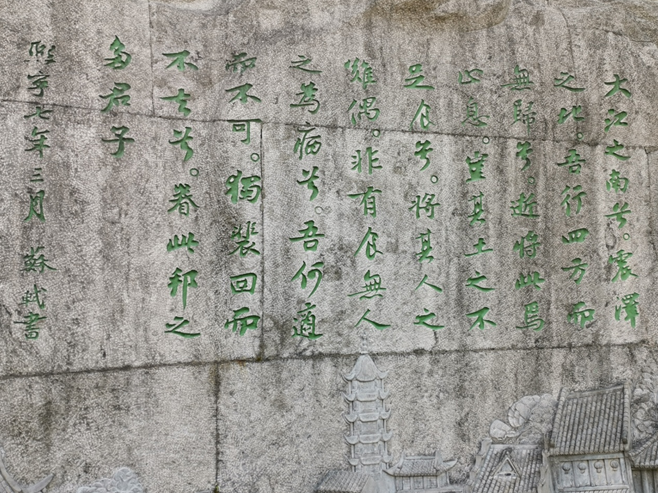 大江之南兮。震澤
之北。吾行四方而
無歸兮。逝將此焉
止息。豈其土之不
足食兮。將其人之
難偶。非有食無人
之為病兮。吾何適
而不可。獨裴回而
不去兮。眷此邦之
多君子
熙寧七年三月 蘇軾書